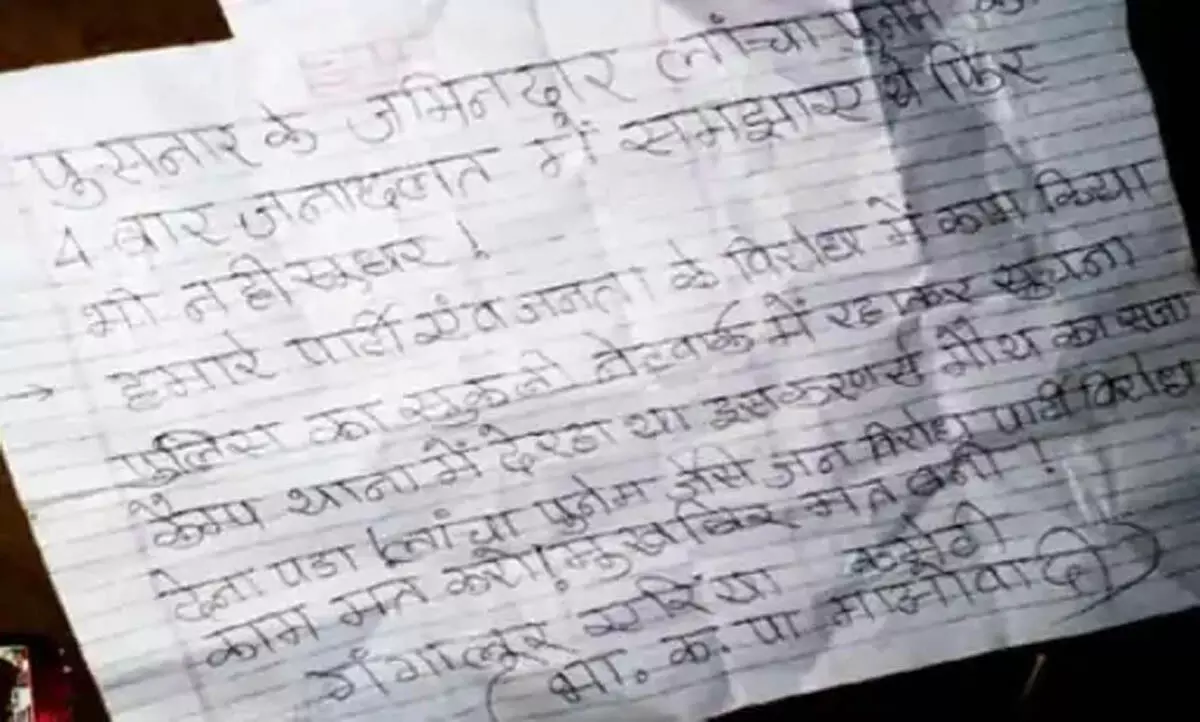 पुसनार के जमिनदार लांचा पुनेम को
4 बार जनादलत में समझाए थे फिर
भी नही सुधर !
→ हमारे पार्टी एंव जनता के विरोध में काम किया
पुलिस का नेटवर्क में रहाकर सुचना
कैम्प थाना में देरहा था इसकरणसे मौथ का सजा
देना पडा लांचा पुनेम जैसे जन विरोध पार्टी विरोध
काम मत करो! मुखबिर मत बनो !
गंगालूर एरिया कमेटी
(भा. क. पा माओवादी)